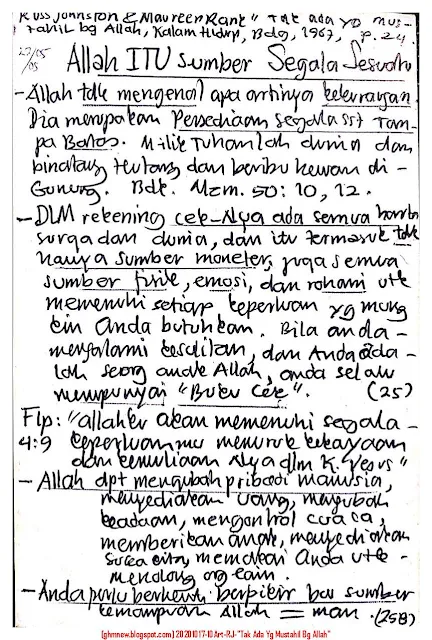 Russ Johnston & Maureen Rank" Tak ada yg mus-
tahil bg Allah, Kalam Hidup, Bdg, 1987, p. 24.
27/05
/05
Allah ITU Sumber Segala Sesuatu
- Allah tdk mengenal apa artinya kekurangan
Dia merupakan Persediaan segala sst Tan-
pa Batas. Milik Tuhanlah dunia dan
binatang Hutang dan beribu hewan di-
Gunung. Bdk. Mzm. 50: 10, 12.
- DLM rekening cek-Nya ada semua harta
surga dan dunia, dan itu termasuk tdk
hanya sumber moneter, juga semua
sumber fisik, emosi, dan rohani utk
memenuhi setiap keperluan yg mung
kin Anda butuhkan. Bila anda-
mengalami kesulitan, dan Anda ada-
lah seorg anak Allah, anda selalu
mempunyai "Buku Cek". (25)
Flp: "allahku akan memenuhi segala-
4:9 keperluanmu menurut kekayaan
dan kemuliaan Nya dlm K. Yesus"
- Allah dpt mengubah pribadi manusia,
menyediakan uang, mengubah
keadaan, mengontrol cuaca,
memberikan anak, menyediakan
suka cita, memakai Anda utk-
menolong org lain.
- Anda perlu berhenti berpikir bw sumber
kemampuan Allah = man. (258)
(ghmnew.blogspot.com) 20201017-10Art-RJ-"Tak Ada Yg Mustahil Bg Allah"